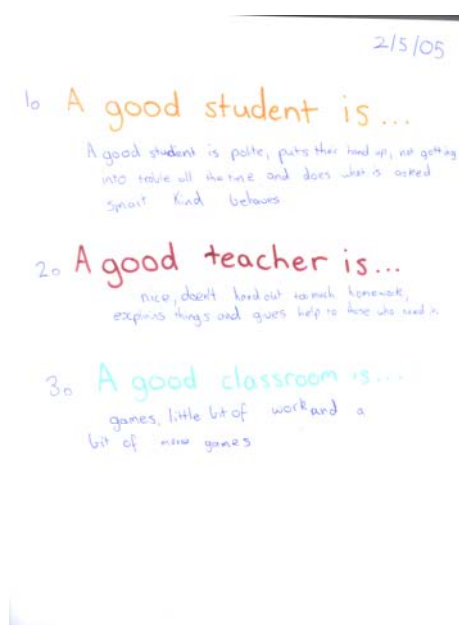 2/5/05
1. A good student is...
A good student is polite, puts ther hand up, not getting
into troule all the time and does what is asked
smart kind behaves
2. A good teacher is...
nice, doen't hand out too much homework,
explains things and gives help to those who need it.
3. A good classroom is...
games, little bit of work and a
bit of more games